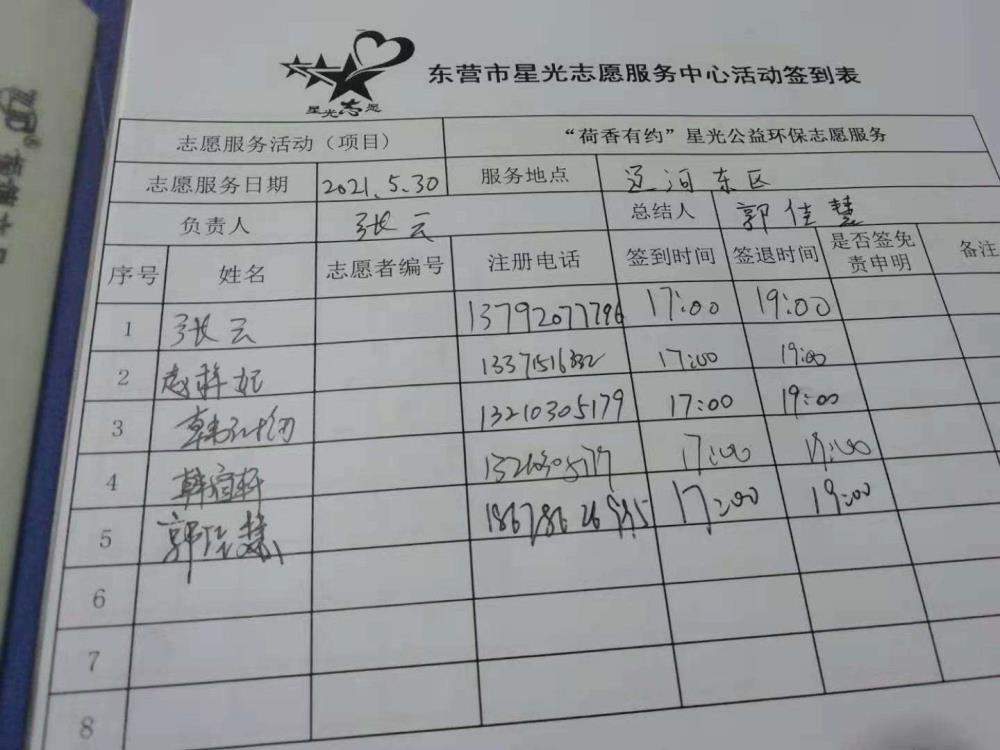 星光志愿
东营市星光志愿服务中心活动签到表
志愿服务活动（项目） “荷香有约”星光公益环保志愿服务
志愿服务日期 2021.5.30 服务地点 辽河东区
负责人 张云 总结人 郭佳慧
序号 姓名 志愿者编号 注册电话 签到时间 签退时间 是否签免责申明 备注
1 张云 13792077796 17:00 19:00
2 17:00 19:00
3 13210305179 17:00 19:00
4 韩宿轩 13210305179 17:00 19:00
5 郭佳慧 17:00 19:00
6
7
8